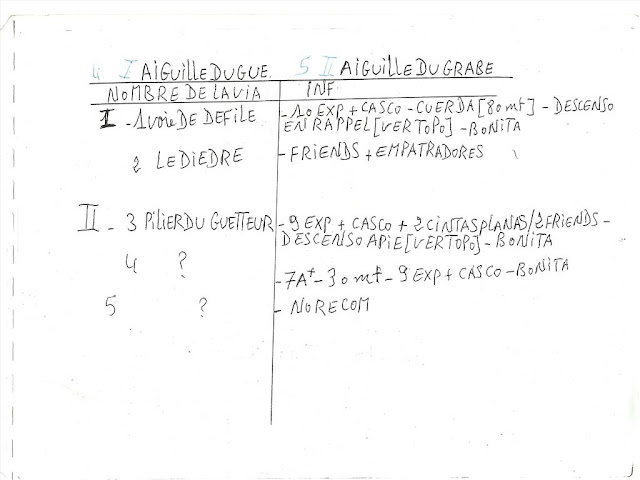 4 I AIGUILLE DU GUE. 5 II AIGUILLE DU GRABE
NOMBRE DE LA VIA INF
I - 1 VOIE DE DEFILE - 10 EXP + CASCO - CUERDA [80 mt] - DESCENSO
EN RAPPEL [VER TOPO] - BONITA
2 LE DIEDRE - FRIENDS + EMPATRADORES
II - 3 PILIER DU GUETTEUR - 9 EXP + CASCO + 2 CINTAS PLANAS / 2 FRIENDS -
DESCENSO A PIE [VER TOPO] - BONITA
4 ? - 7A+ - 30 mt - 9 EXP + CASCO - BONITA
5 ? - NO RECOM